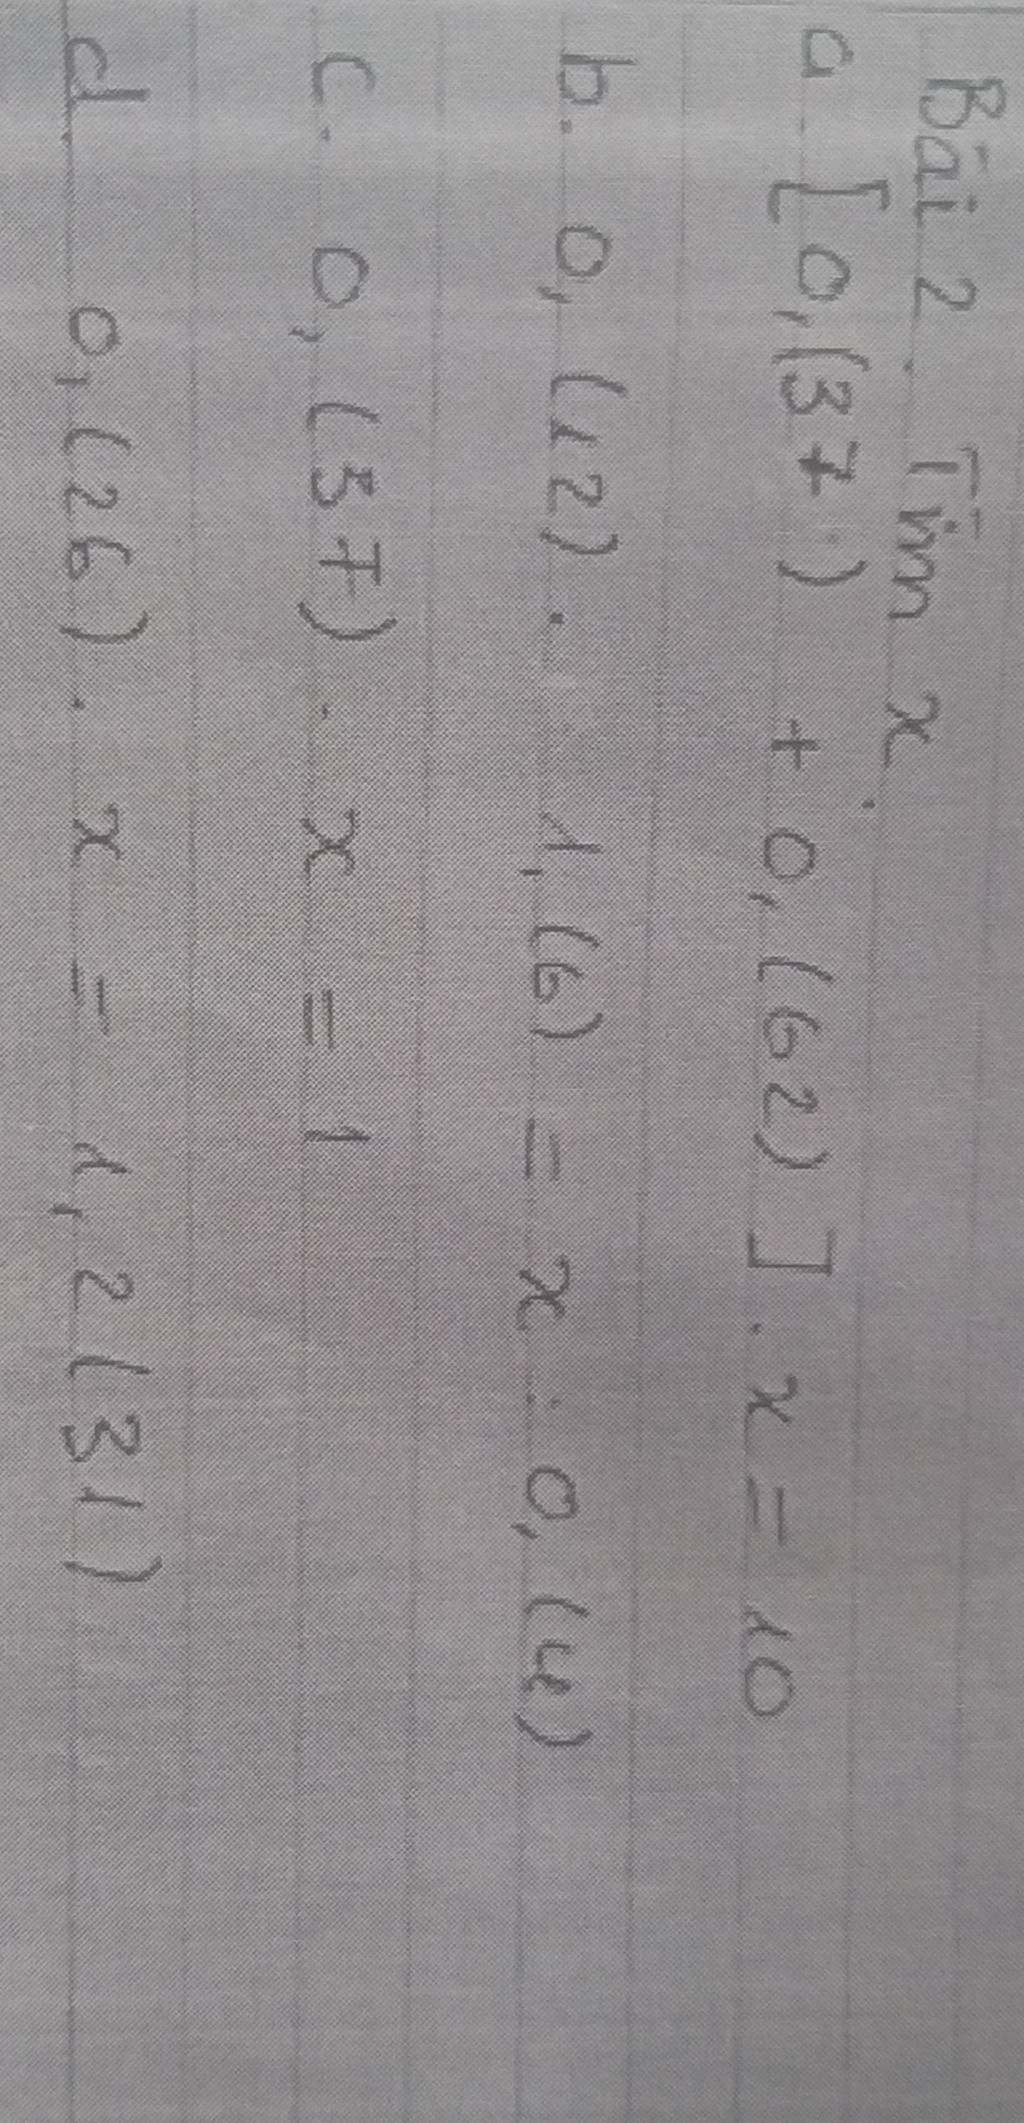 Bài 2. Tìm x.
a. [0,(37) + 0,(62)] . x = 10
b. 0,(12) . 1,(6) = x : 0,(4)
c. 0,(37) . x = 1
d. 0,(26) . x = 1,2(31)